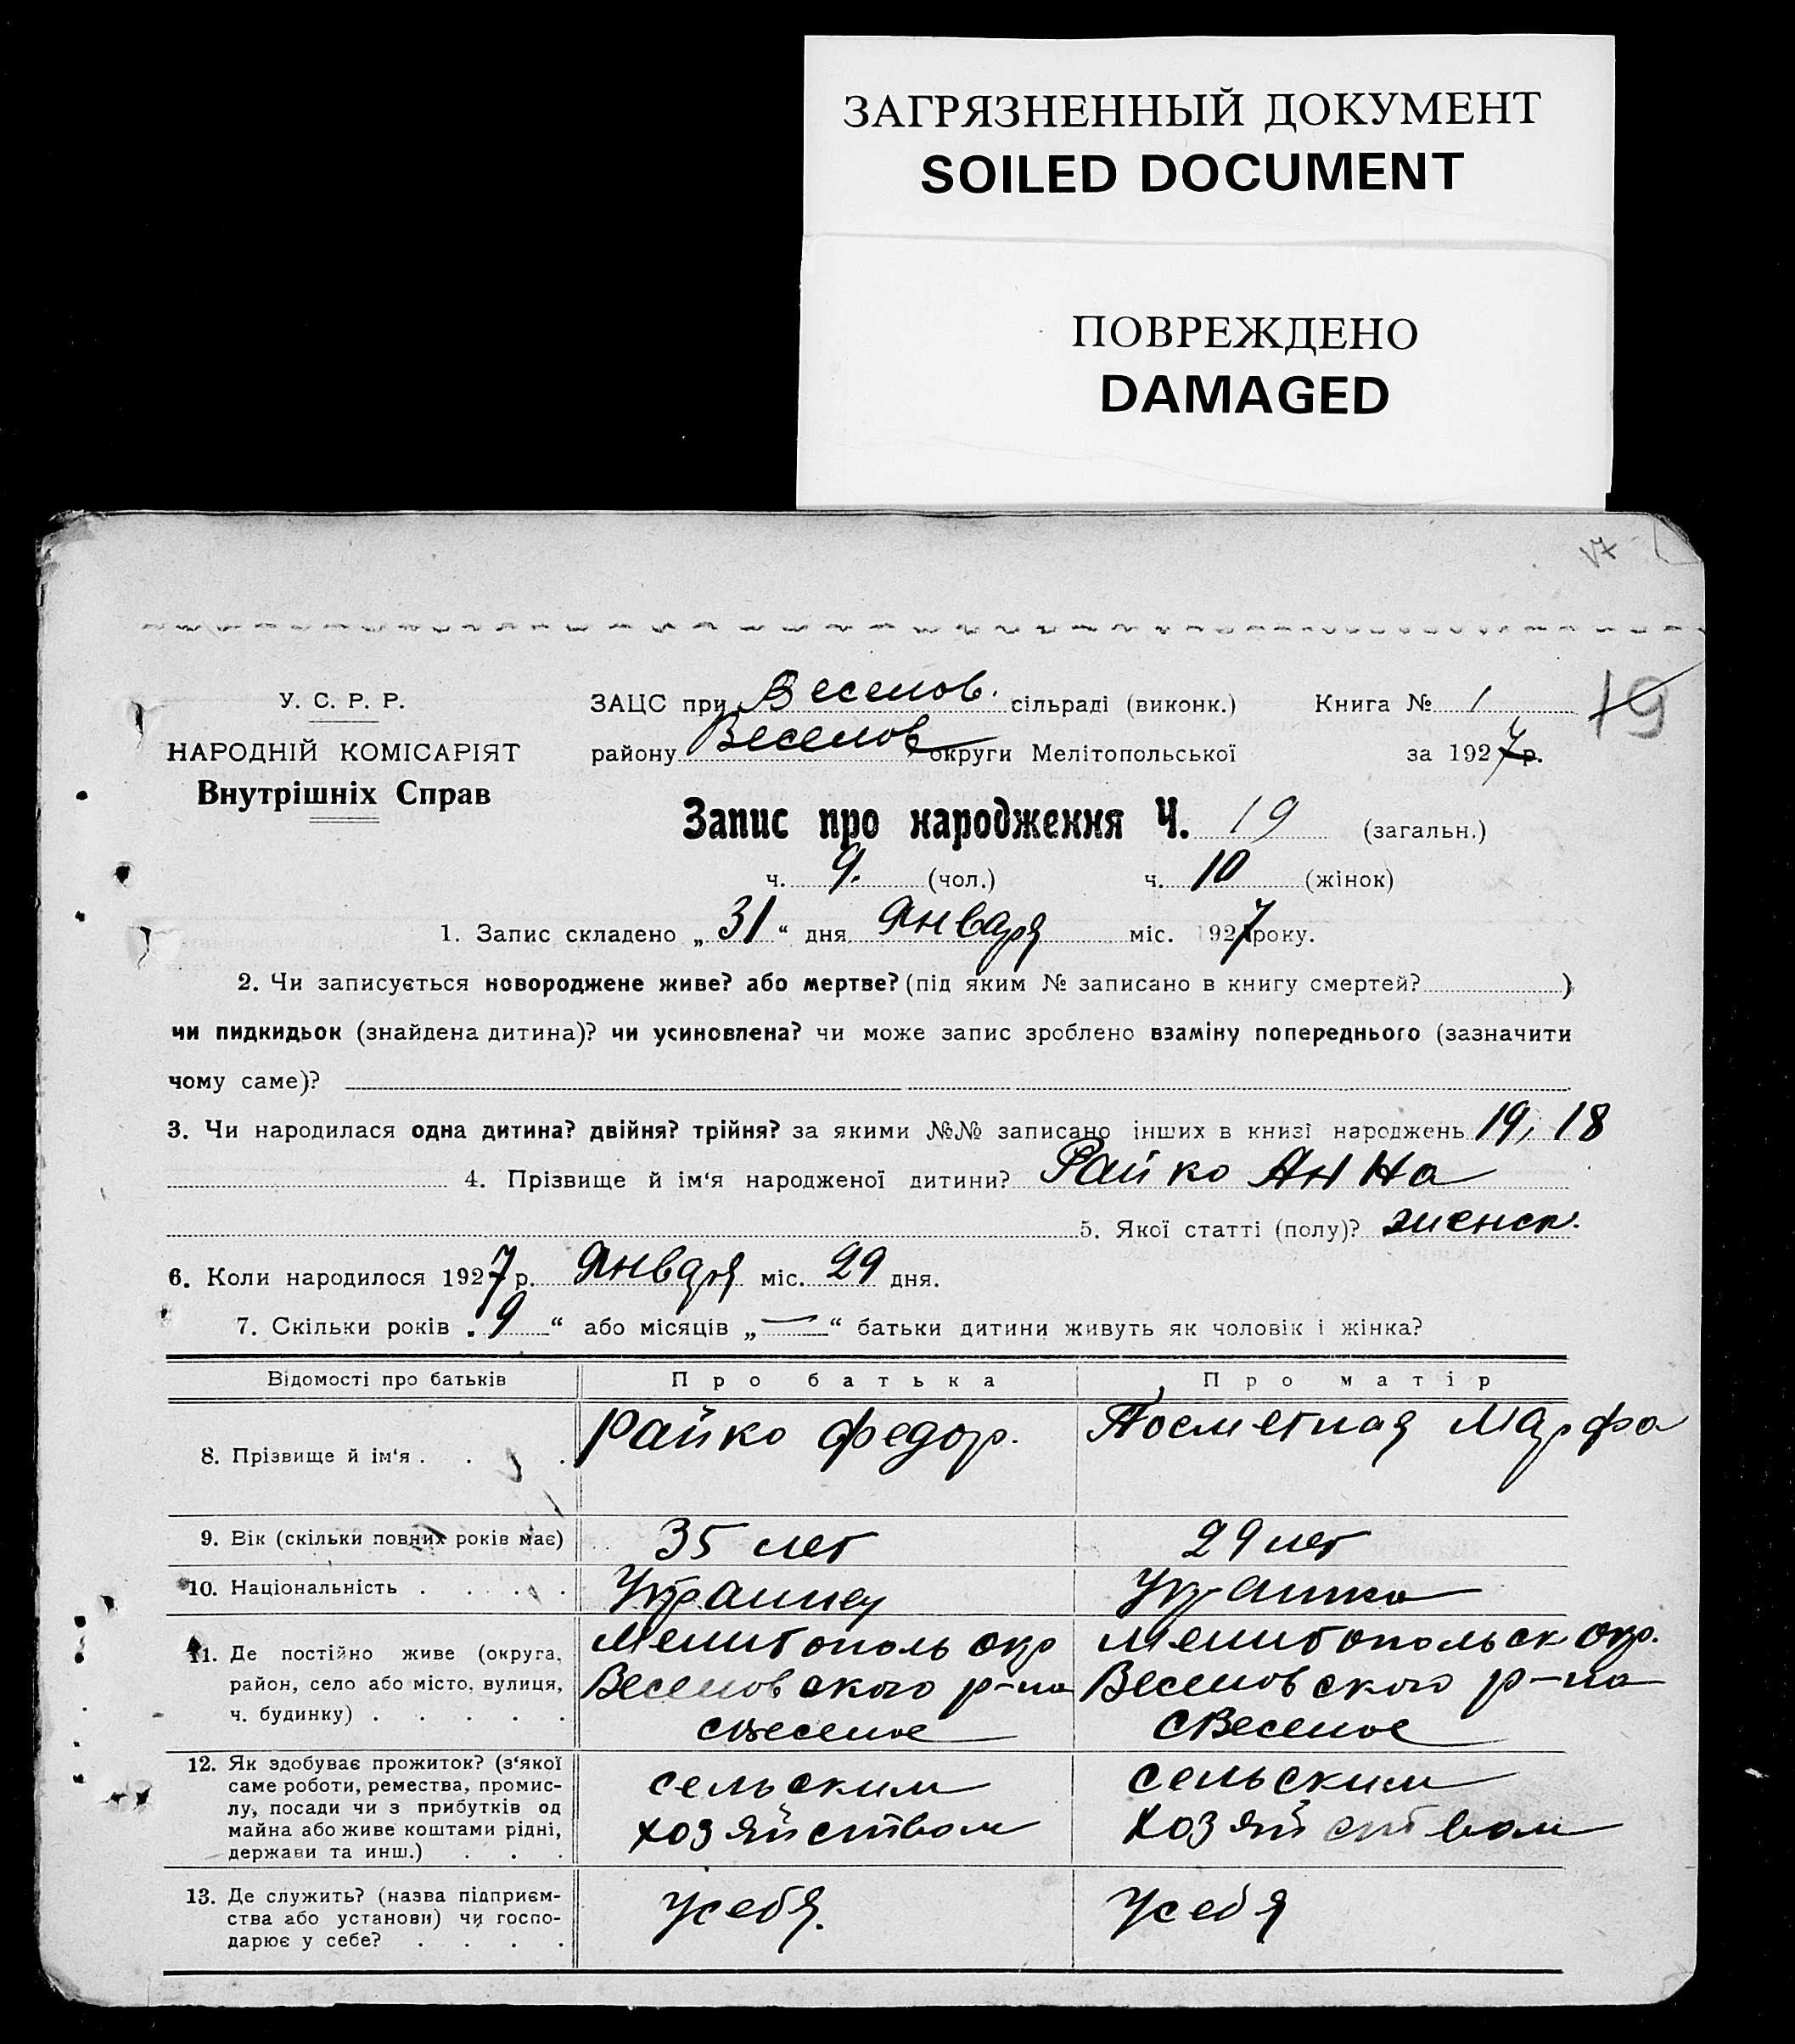 ЗАГРЯЗНЕННЫЙ ДОКУМЕНТ
SOILED DOCUMENT
ПОВРЕЖДЕНО
DAMAGED
У. С. Р. Р.
НАРОДНІЙ КОМІСАРІЯТ
Внутрішніх Справ
ЗАЦС при Веселов. сільраді (виконк.) Книга № 1
19
району Веселов округи Мелітопольської за 1927 р.
Запис про народження Ч. 19 (загальн.)
ч. 9. (чол.) ч. 10 (жінок)
1. Запис складено „31“ дня Января міс. 1927 року.
2. Чи записується новороджене живе? або мертве? (під яким № записано в книгу смертей? )
чи пидкидьок (знайдена дитина)? чи усиновлена? чи може запис зроблено взаміну попереднього (зазначити
чому саме)?
3. Чи народилася одна дитина? двійня? трійня? за якими №№ записано інших в книзі народжень 19, 18
4. Прізвище й ім‘я народженої дитини? Райко Анна
5. Якої статті (полу)? женск.
6. Коли народилося 1927 р. Января міс. 29 дня.
7. Скільки років „9“ або місяців „—“ батьки дитини живуть як чоловік і жінка?
Відомості про батьків Про батька Про матір
8. Прізвище й ім‘я . . . . Райко Федор. Посметная Марфа
9. Вік (скільки повних років має) 35 лет 29 лет
10. Національність . . . . . Украинец Украинка
11. Де постійно живе (округа,
район, село або місто, вулиця,
ч. будинку) . . . . .
Мелитополь окр
Веселовского р-на
с Веселое
Мелитопольск окр.
Веселовского р-на
с Веселое
12. Як здобуває прожиток? (з‘якої
саме роботи, ремества, промис-
лу, посади чи з прибутків од
майна або живе коштами рідні,
держави та инш.) . . .
сельским
хозяйством
сельским
хозяйством
13. Де служить? (назва підприєм-
ства або установи) чи госпо-
дарює у себе? . . . .
У себя.
У себя